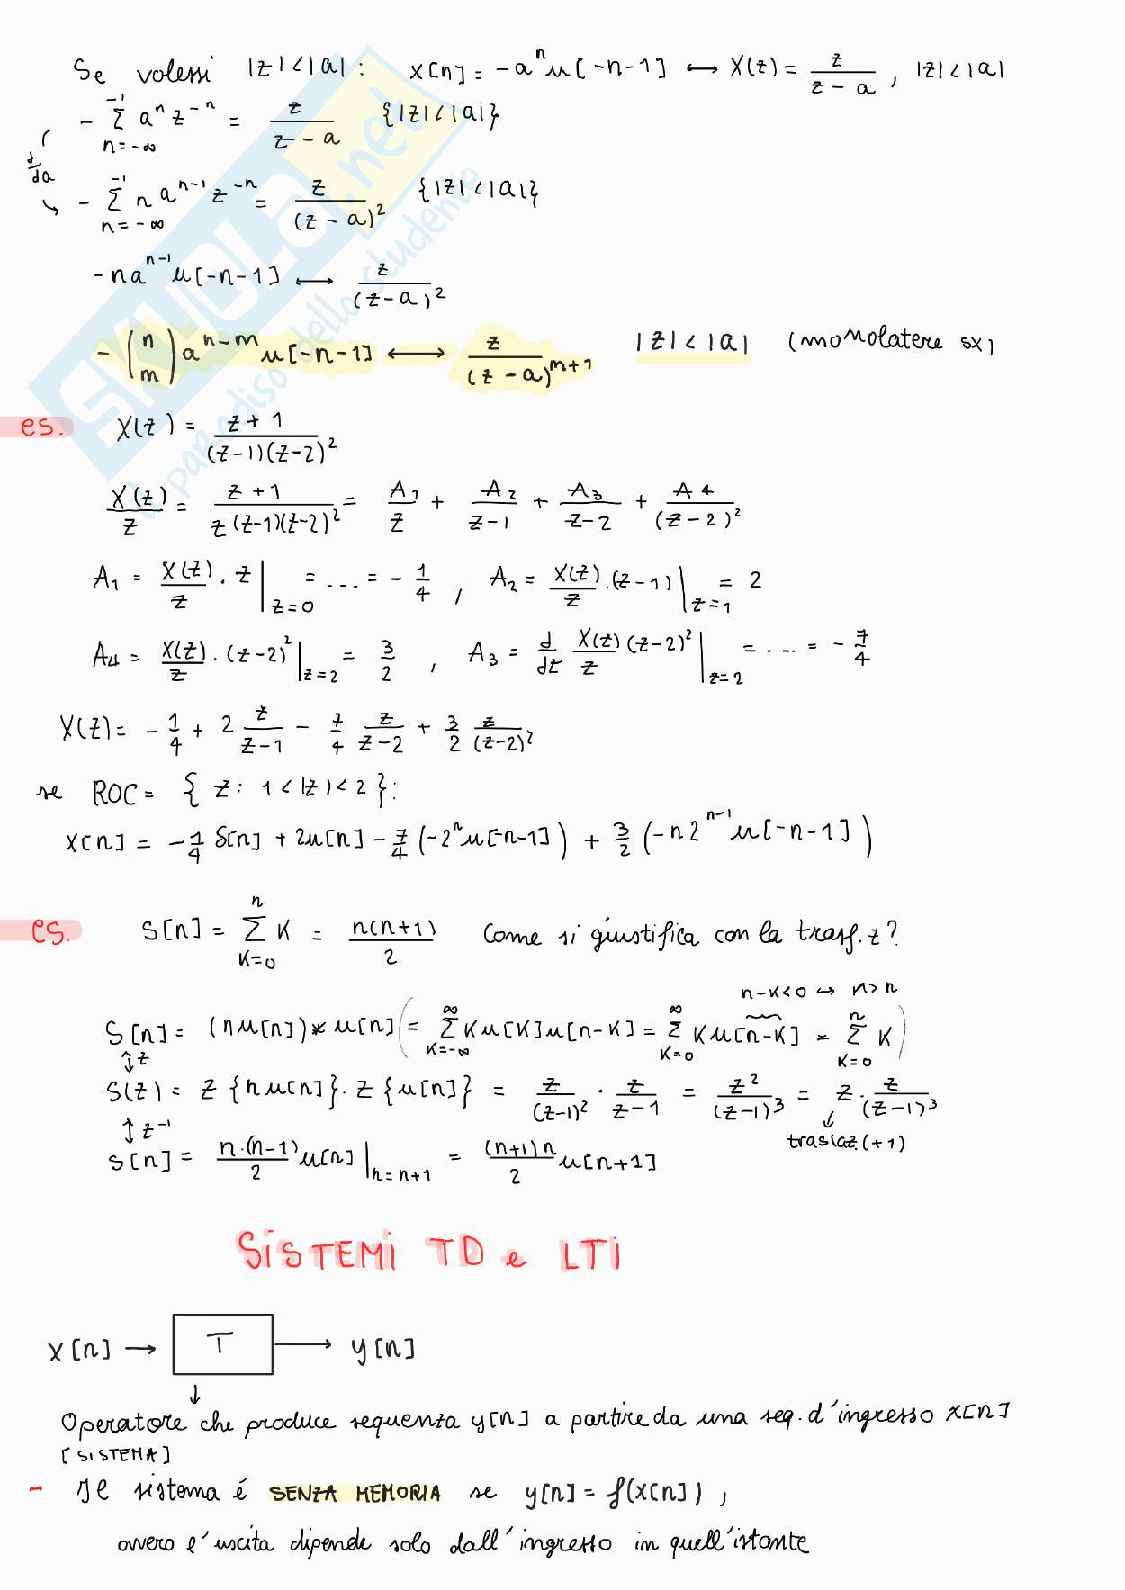 Se volessi |z|<|a| : x[n] = -aⁿu[-n-1] ⟷ X(z) = z/(z-a) , |z|<|a|
- Σ_{n=-∞}^{-1} aⁿ z⁻ⁿ = z/(z-a) {|z|<|a|}
d/da
- Σ_{n=-∞}^{-1} n aⁿ⁻¹ z⁻ⁿ = z/(z-a)² {|z|<|a|}
-n aⁿ⁻¹ u[-n-1] ⟷ z/(z-a)²
- (n m) a^{n-m} u[-n-1] ⟷ z/(z-a)^{m+1} |z|<|a| (monolatere sx)
es. X(z) = (z+1)/((z-1)(z-2)²)
X(z)/z = (z+1)/(z(z-1)(z-2)²) = A₁/z + A₂/(z-1) + A₃/(z-2) + A₄/(z-2)²
A₁ = X(z)/z · z |_{z=0} = ... = - 1/4 , A₂ = X(z)/z · (z-1) |_{z=1} = 2
A₄ = X(z)/z · (z-2)² |_{z=2} = 3/2 , A₃ = d/dz X(z)/z (z-2)² |_{z=2} = .... = - 7/4
X(z) = - 1/4 + 2 z/(z-1) - 7/4 z/(z-2) + 3/2 z/(z-2)²
se ROC = { z : 1<|z|<2 } :
x[n] = - 1/4 δ[n] + 2u[n] - 7/4 (-2ⁿu[-n-1]) + 3/2 (-n2ⁿ⁻¹u[-n-1])
es. S[n] = Σ_{K=0}^{n} K = n(n+1)/2 Come si giustifica con la trasf. z?
n-K<0 → K>n
S[n] = (nu[n]) * u[n] (= Σ_{K=-∞}^{∞} Ku[K]u[n-K] = Σ_{K=0}^{∞} Ku[n-K] = Σ_{K=0}^{n} K)
↕ z
S(z) = Z{nu[n]}·Z{u[n]} = z/(z-1)² · z/(z-1) = z²/(z-1)³ = z · z/(z-1)³
↕ z⁻¹ ↓ traslaz.(+1)
s[n] = n·(n-1)/2 u[n] |_{n=n+1} = (n+1)n/2 u[n+1]
SISTEMI TD e LTI
x[n] → T → y[n]
↓
Operatore che produce sequenza y[n] a partire da una seq. d'ingresso x[n]
[SISTEMA]
- Il sistema é SENZA MEMORIA se y[n] = f(x[n]) ,
ovvero l'uscita dipende solo dall'ingresso in quell'istante
SKUOLA.net
il paradiso dello studente